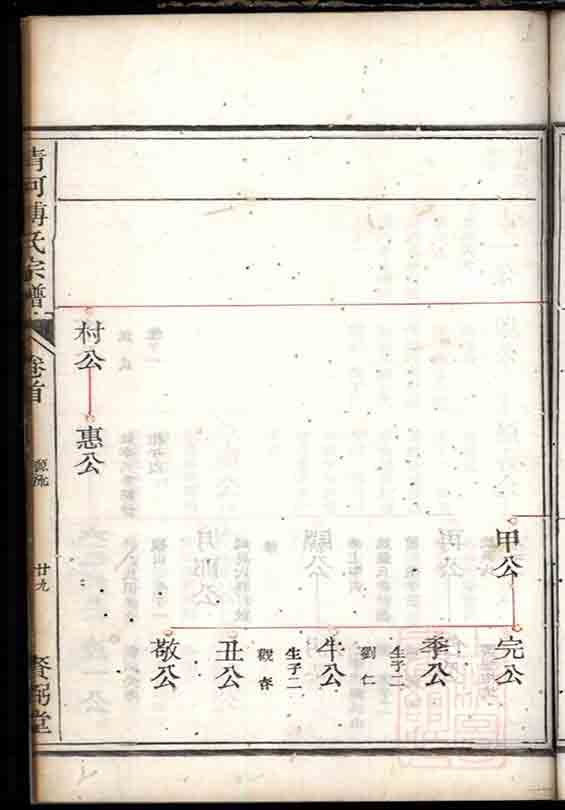 甲公
完公
季公
生子二
劉仁
牛公
生子二
觀春
丑公
敬公
村公
惠公
清河傅氏宗譜
卷首
源流
廿九
賚弼堂